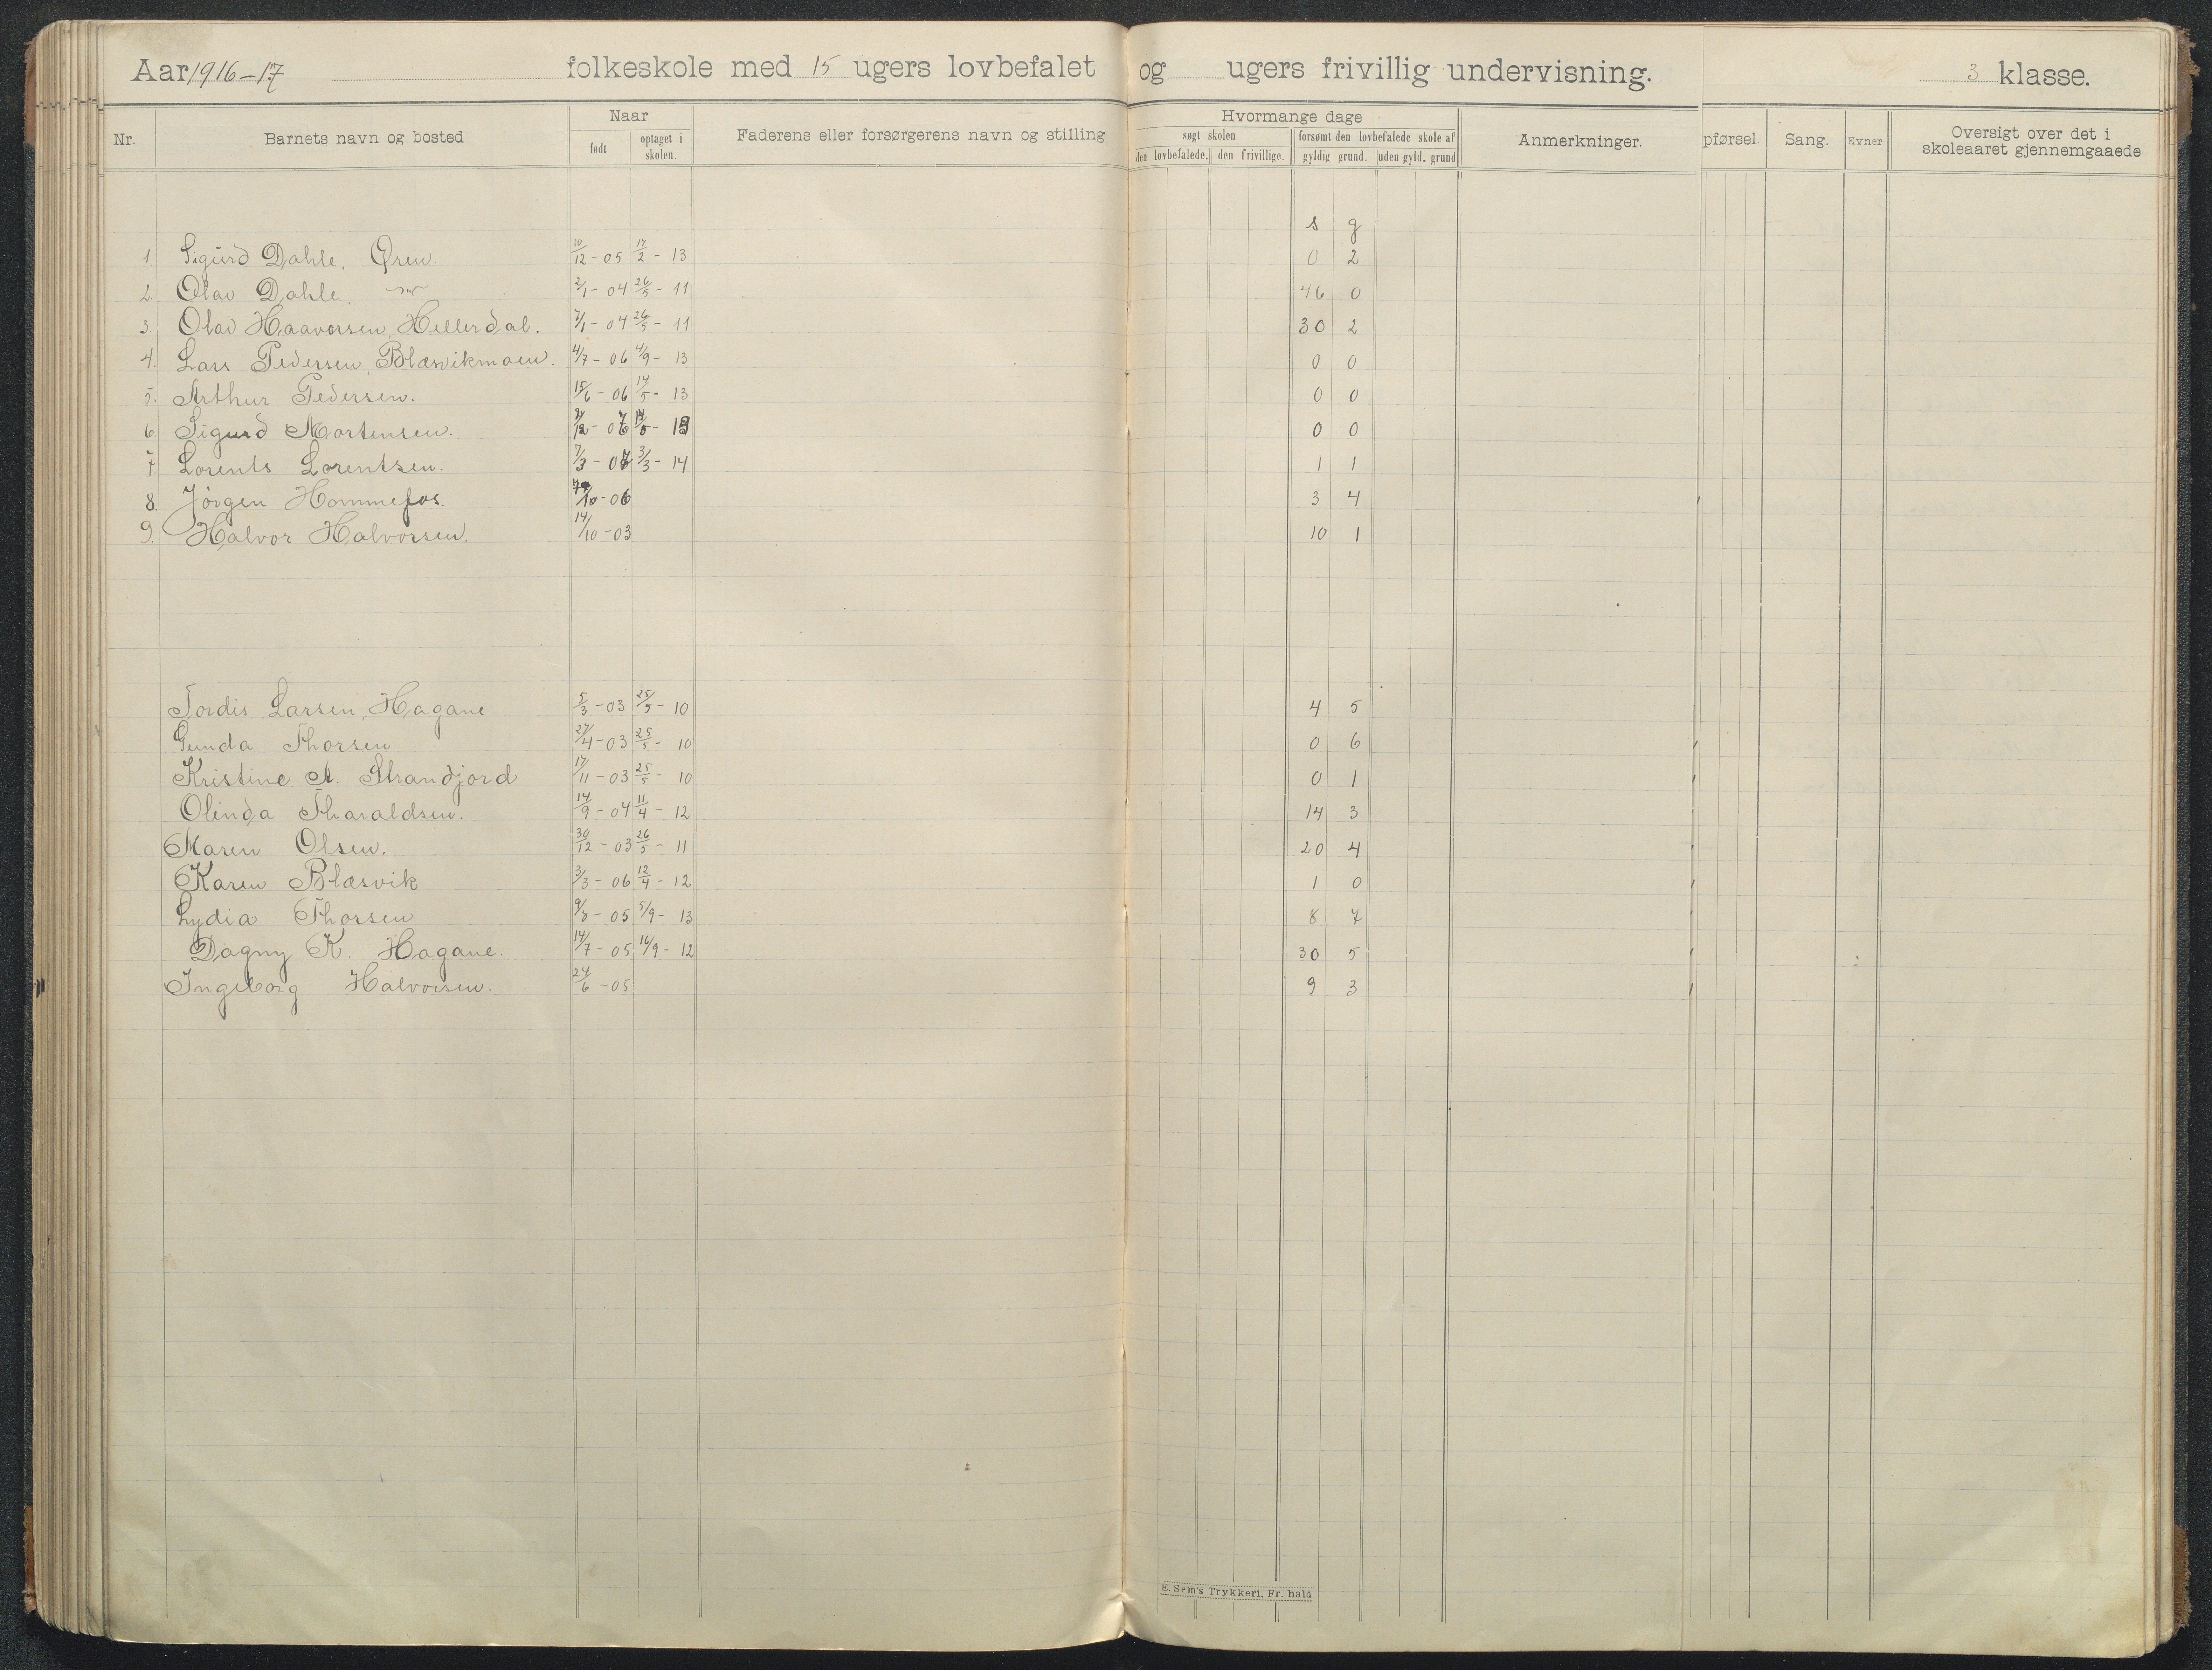 Aar 1916-17 folkeskole med 15 ugers lovbefalet og ugers frivillig undervisning. 3 klasse.
Nr. Barnets navn og bosted Naar født optaget i skolen. Faderens eller forsørgerens navn og stilling Hvormange dage søgt skolen den lovbefalede. den frivillige. forsømt den lovbefalede skole af gyldig grund. uden gyld. grund Anmerkninger. pførsel Sang. Evner Oversigt over det i skoleaaret gjennemgaaede
s g
1 Sigurd Dahle, Øren. 10/12-05 17/2-13 0 2
2. Olav Dahle, 2/1-04 26/5-11 46 0
3. Olav Haaversen, Hellerdal. 7/1-04 26/5-11 30 2
4. Lars Pedersen, Blæsvikmoen. 4/7-06 4/9-13 0 0
5. Arthur Pedersen. 15/6-06 14/5-13 0 0
6. Sigurd Mortensen. 0 0
7 Lorents Lorentsen. 7/3-07 3/3-14 1 1
8. Jörgen Hommefos. 10-06 3 4
9. Halvor Halvorsen. 14/10-03 10 1
Tordis Larsen, Hagane 5/3-03 25/5-10 4 5
Gunda Thorsen 27/4-03 25/5-10 0 6
Kristine A. Strandjord 17/11-03 25/5-10 0 1
Olinda Tharaldsen. 14/9-04 11/4-12 14 3
Maren Olsen. 30/12-03 26/5-11 20 4
Karen Blæsvik 3/3-06 12/4-12 1 0
Lydia Thorsen 9/8-05 5/9-13 8 7
Dagny K. Hagane. 14/7-05 16/9-12 30 5
Ingeborg Halvorsen. 24/6-05 9 3
E. Sem's Trykkeri, Fr. hald